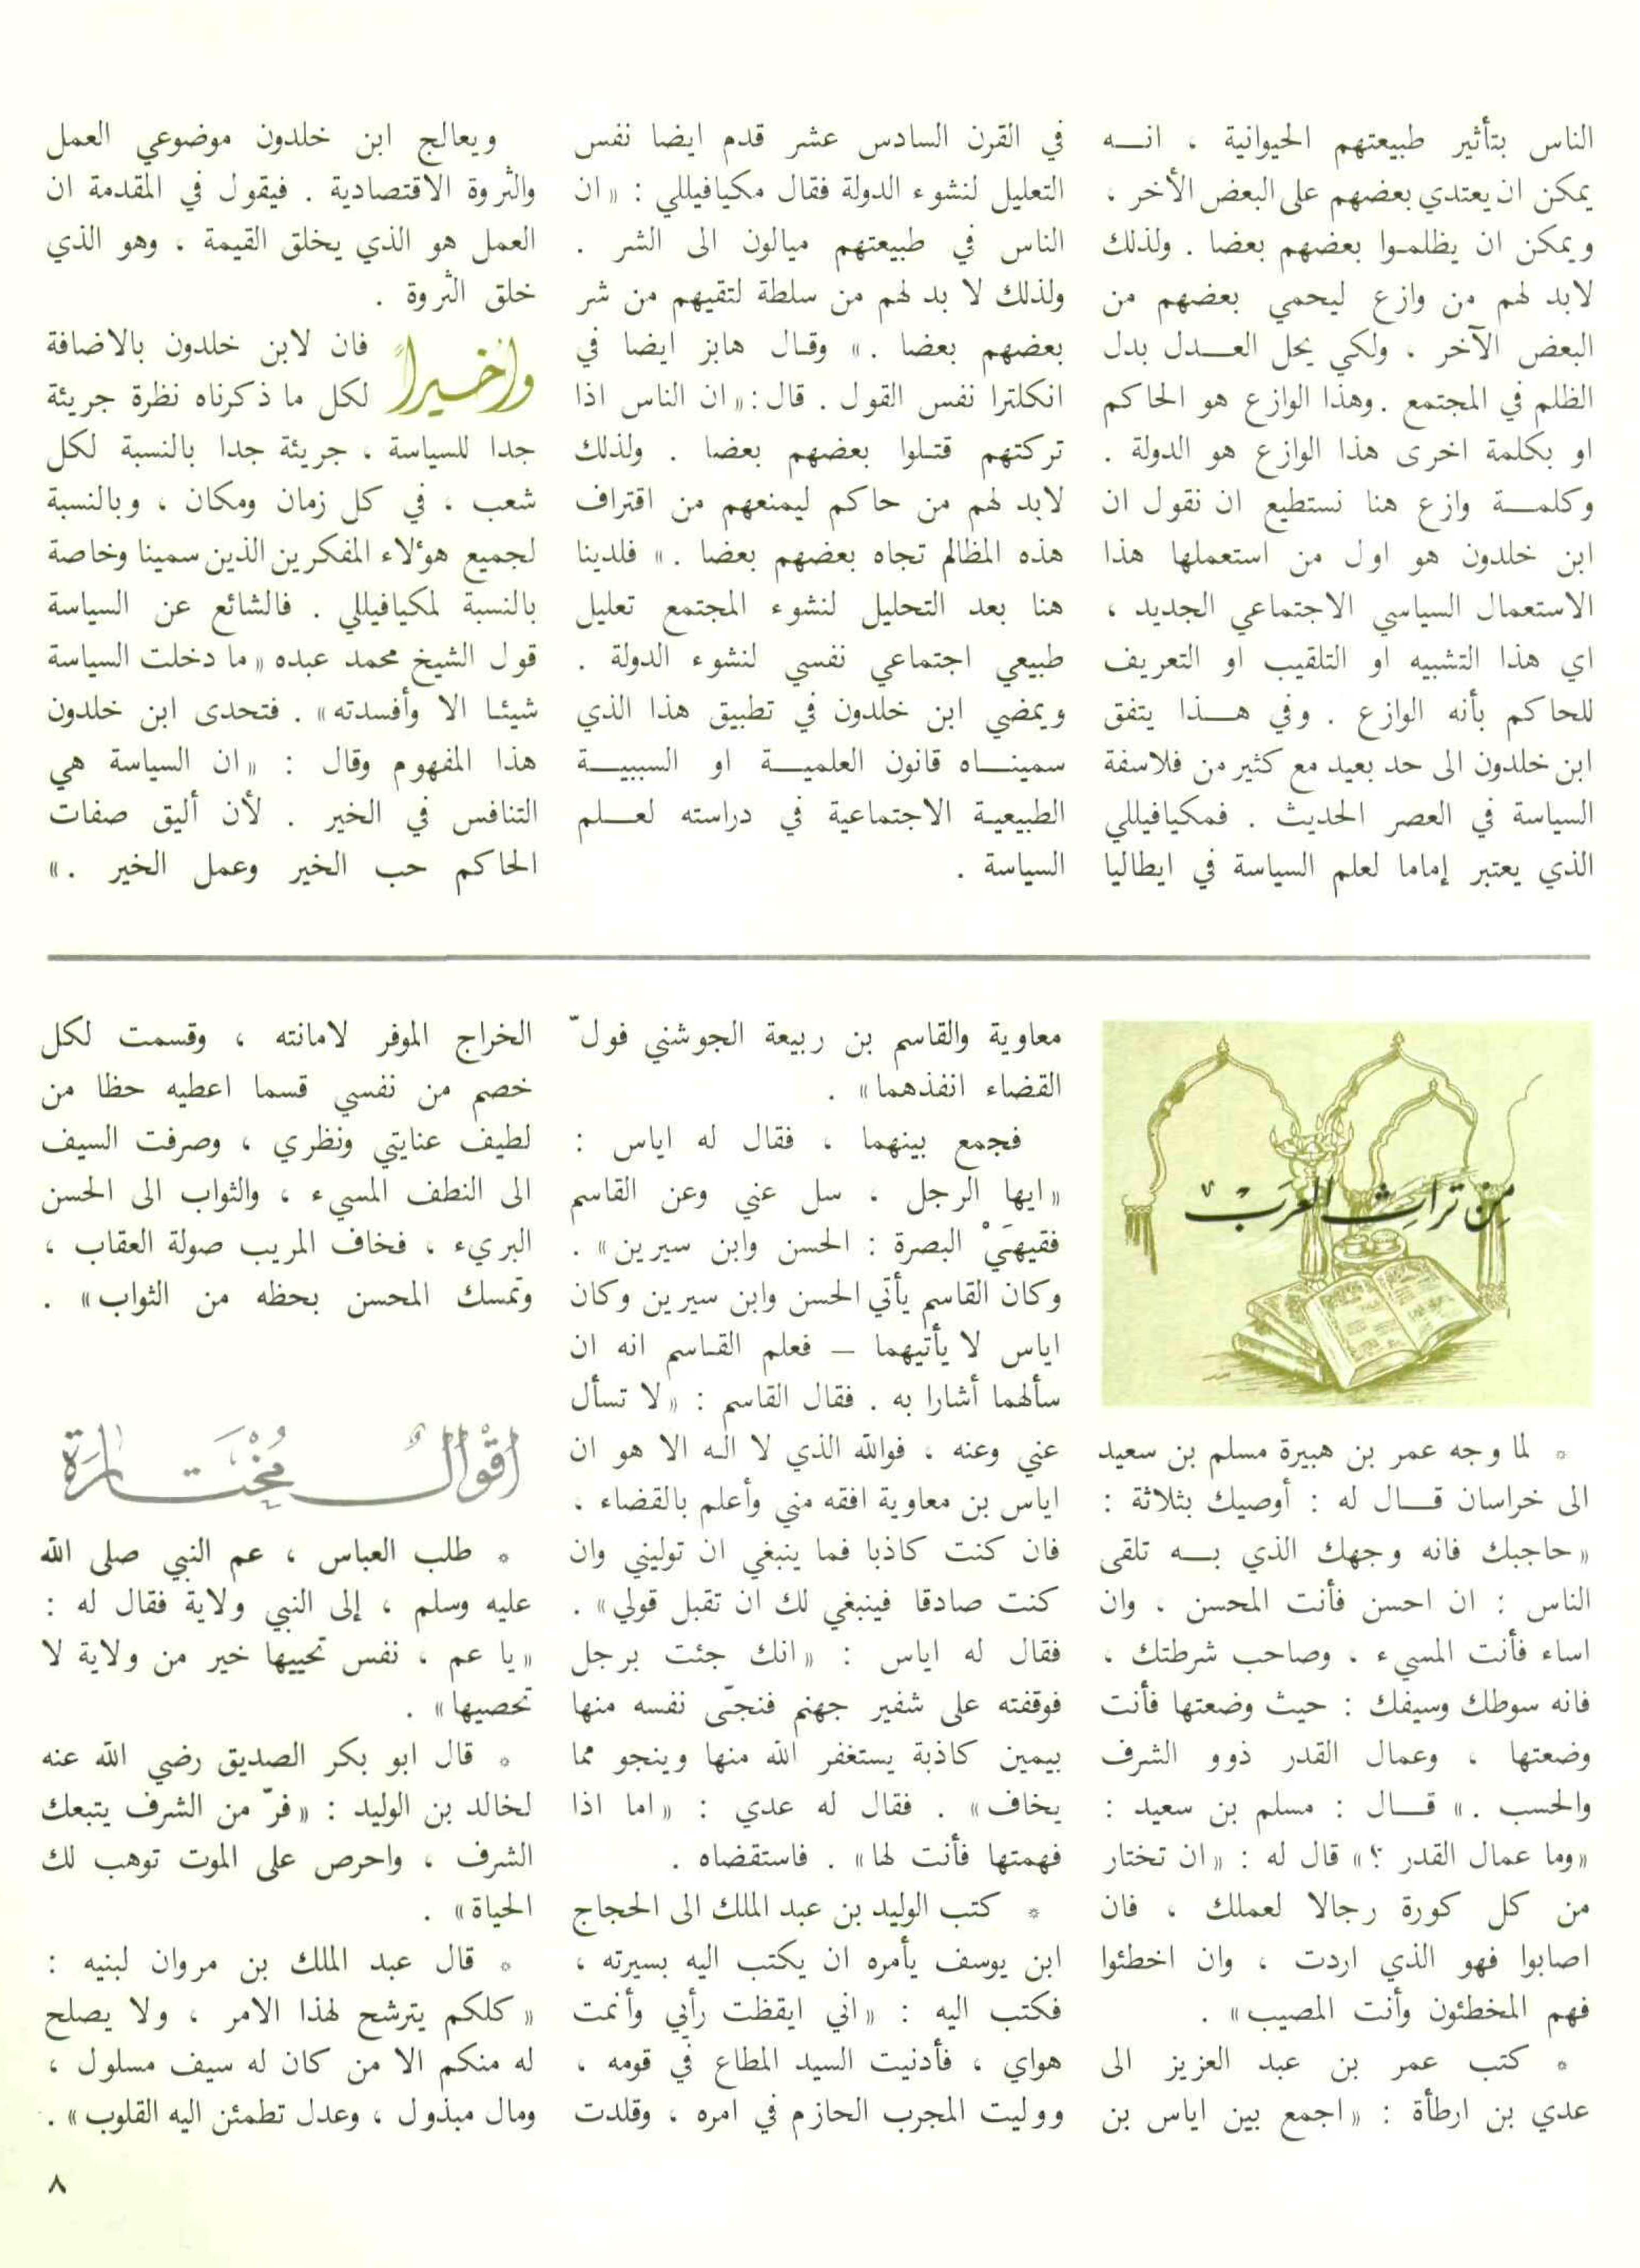 الناس بتأثير طبيعتهم الحيوانية ، انـــه
يمكن ان يعتدي بعضهم على البعض الأخر ،
ويمكن ان يظلمـوا بعضهم بعضا . ولذلك
لابد لهم من وازع ليحمي بعضهم من
البعض الآخر ، ولكي يحل العــدل بدل
الظلم في المجتمع . وهذا الوازع هو الحاكم
او بكلمة اخرى هذا الوازع هو الدولة .
وكلمـــة وازع هنا نستطيع ان نقول ان
ابن خلدون هو اول من استعملها هذا
الاستعمال السياسي الاجتماعي الجديد ،
اي هذا التشبيه او التلقيب او التعريف
للحاكم بأنه الوازع . وفي هـــذا يتفق
ابن خلدون الى حد بعيد مع كثير من فلاسفة
السياسة في العصر الحديث . فمكيافيللي
الذي يعتبر إماما لعلم السياسة في ايطاليا
في القرن السادس عشر قدم ايضا نفس
التعليل لنشوء الدولة فقال مكيافيللي : « ان
الناس في طبيعتهم ميالون الى الشر .
ولذلك لا بد لهم من سلطة لتقيهم من شر
بعضهم بعضا . » وقال هابز ايضا في
انكلترا نفس القول . قال : « ان الناس اذا
تركتهم قتلوا بعضهم بعضا . ولذلك
لابد لهم من حاكم ليمنعهم من اقتراف
هذه المظالم تجاه بعضهم بعضا . » فلدينا
هنا بعد التحليل لنشوء المجتمع تعليل
طبيعي اجتماعي نفسي لنشوء الدولة .
ويمضي ابن خلدون في تطبيق هذا الذي
سمينــاه قانون العلميــة او السببيــة
الطبيعيـة الاجتماعية في دراسته لعـــلم
السياسة .
ويعالج ابن خلدون موضوعي العمل
والثروة الاقتصادية . فيقول في المقدمة ان
العمل هو الذي يخلق القيمة ، وهو الذي
خلق الثروة .
وأخيراً فان لابن خلدون بالاضافة
لكل ما ذكرناه نظرة جريئة
جدا للسياسة ، جريئة جدا بالنسبة لكل
شعب ، في كل زمان ومكان ، وبالنسبة
لجميع هؤلاء المفكرين الذين سمينا وخاصة
بالنسبة لمكيافيللي . فالشائع عن السياسة
قول الشيخ محمد عبده « ما دخلت السياسة
شيئـا الا وأفسدته » . فتحدى ابن خلدون
هذا المفهوم وقال : « ان السياسة هي
التنافس في الخير . لأن أليق صفات
الحاكم حب الخير وعمل الخير . »
مِن تراثِ العَرَبْ
* لما وجه عمر بن هبيرة مسلم بن سعيد
الى خراسان قـــال له : أوصيك بثلاثة :
« حاجبك فانه وجهك الذي بـــه تلقى
الناس : ان احسن فأنت المحسن ، وان
اساء فأنت المسيء ، وصاحب شرطتك ،
فانه سوطك وسيفك : حيث وضعتها فأنت
وضعتها ، وعمال القدر ذوو الشرف
والحسب . » قـــال : مسلم بن سعيد :
« وما عمال القدر ؟ » قال له : « ان تختار
من كل كورة رجالا لعملك ، فان
اصابوا فهو الذي اردت ، وان اخطئوا
فهم المخطئون وأنت المصيب » .
* كتب عمر بن عبد العزيز الى
عدي بن ارطأة : « اجمع بين اياس بن
معاوية والقاسم بن ربيعة الجوشني فولّ
القضاء انفذهما » .
فجمع بينهما ، فقال له اياس :
« ايها الرجل ، سل عني وعن القاسم
فقيهَيْ البصرة : الحسن وابن سيرين » .
وكان القاسم يأتي الحسن وابن سيرين وكان
اياس لا يأتيهما — فعلم القاسم انه ان
سألهما أشارا به . فقال القاسم : « لا تسأل
عني وعنه ، فوالله الذي لا اله الا هو ان
اياس بن معاوية افقه مني وأعلم بالقضاء ،
فان كنت كاذبا فما ينبغي ان توليني وان
كنت صادقا فينبغي لك ان تقبل قولي » .
فقال له اياس : « انك جئت برجل
فوقفته على شفير جهنم فنجّى نفسه منها
بيمين كاذبة يستغفر الله منها وينجو مما
يخاف » . فقال له عدي : « اما اذا
فهمتها فأنت لها » . فاستقضاه .
* كتب الوليد بن عبد الملك الى الحجاج
ابن يوسف يأمره ان يكتب اليه بسيرته ،
فكتب اليه : « اني ايقظت رأيي وأنمت
هواي ، فأدنيت السيد المطاع في قومه ،
ووليت المجرب الحازم في امره ، وقلدت
الخراج الموفر لامانته ، وقسمت لكل
خصم من نفسي قسما اعطيه حظا من
لطيف عنايتي ونظري ، وصرفت السيف
الى النطف المسيء ، والثواب الى الحسن
البريء ، فخاف المريب صولة العقاب ،
وتمسك المحسن بحظه من الثواب » .
اقْوالٌ مُخْتَارَة
* طلب العباس ، عم النبي صلى الله
عليه وسلم ، إلى النبي ولاية فقال له :
« يا عم ، نفس تحييها خير من ولاية لا
تحصيها » .
* قال ابو بكر الصديق رضي الله عنه
لخالد بن الوليد : « فرّ من الشرف يتبعك
الشرف ، واحرص على الموت توهب لك
الحياة » .
* قال عبد الملك بن مروان لبنيه :
« كلكم يترشح لهذا الامر ، ولا يصلح
له منكم الا من كان له سيف مسلول ،
ومال مبذول ، وعدل تطمئن اليه القلوب » .
٨